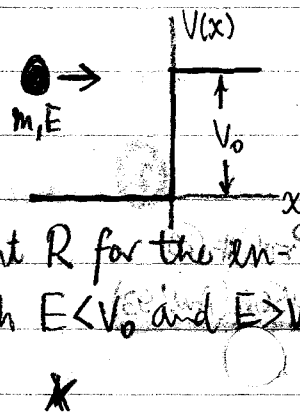 V(x)
m,E
V₀
x
nt R for the en-
h E<V₀ and E>V